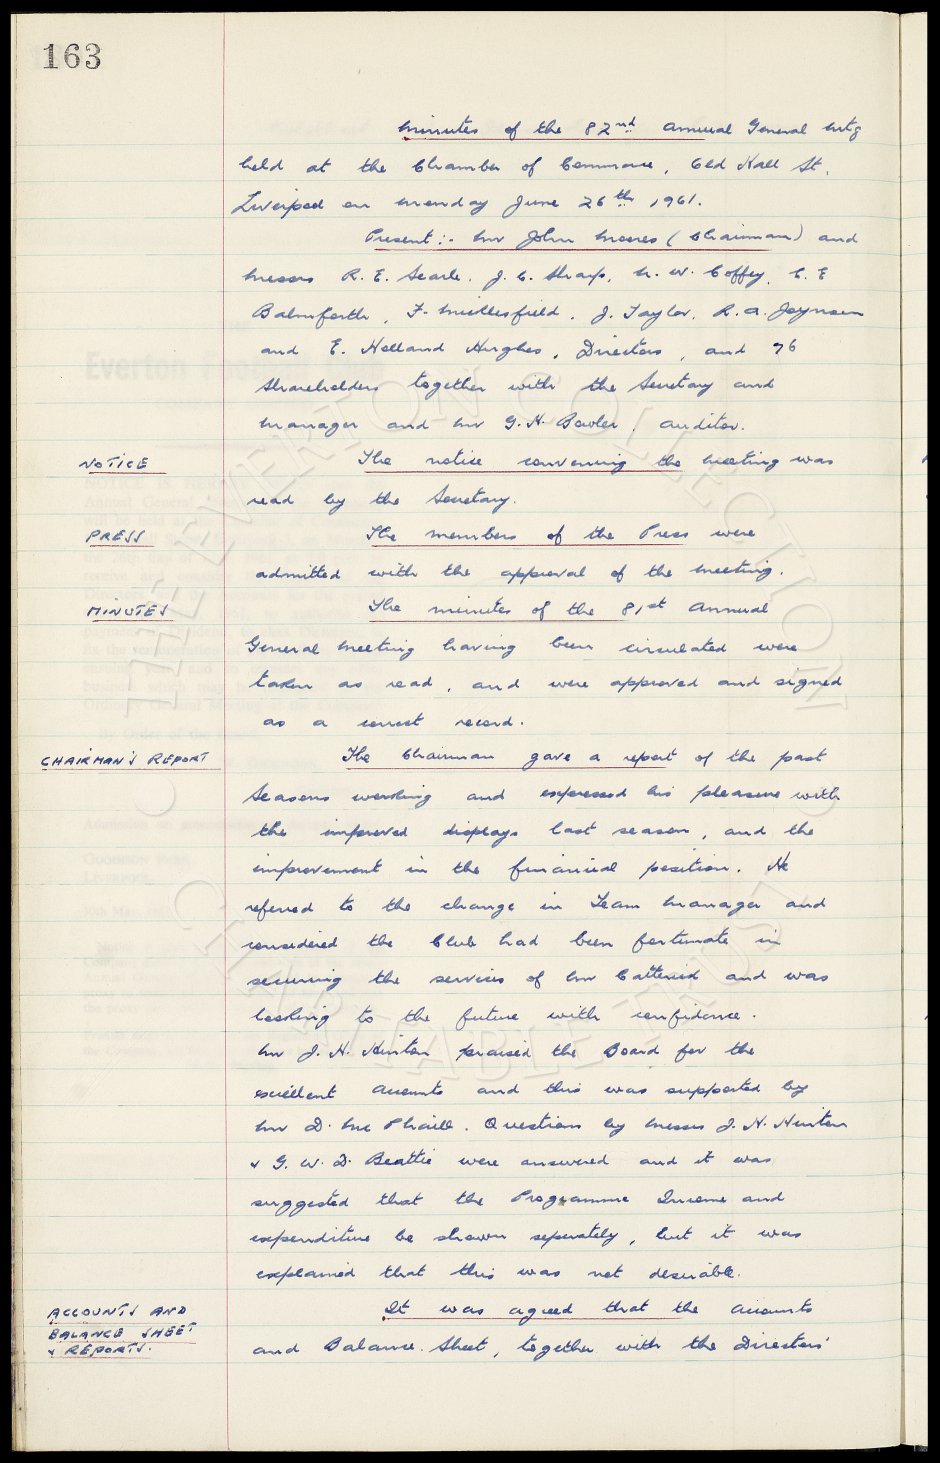 163
Minutes of the 82nd Annual General Mtg
held at the Chamber of Commerce, Old Hall St,
Liverpool on Monday June 26th 1961.
Present:- Mr John Moores (Chairman) and
Messrs R. E. Searle, J. C. Sharp, N. W. Coffey, C. E
Balmforth, F. Micklesfield, J. Taylor, R. A. Joynson
and E. Holland Hughes, Directors, and 76
Shareholders together with the Secretary and
Manager and Mr G. H. Bowler, Auditor.
NOTICE The notice convening the meeting was
read by the Secretary.
PRESS The members of the Press were
admitted with the approval of the meeting.
MINUTES The minutes of the 81st Annual
General Meeting having been circulated were
taken as read, and were approved and signed
as a correct record.
CHAIRMAN'S REPORT The Chairman gave a report of the past
Seasons working and expressed his pleasure with
the improved displays last season, and the
improvement in the financial position. He
referred to the change in Team Manager and
considered the Club had been fortunate in
securing the services of Mr Catterick and was
looking to the future with confidence.
Mr J. H. Hinton praised the Board for the
excellent accounts and this was supported by
Mr D. Mc Phaill. Questions by Messrs J. H. Hinton
& G. W. D. Beattie were answered and it was
suggested that the Programme Income and
expenditure be shown seperately, but it was
explained that this was not desirable.
ACCOUNTS AND It was agreed that the accounts
BALANCE SHEET
& REPORTS. and Balance Sheet, together with the Directors'
THE EVERTON COLLECTION
CHARITABLE TRUST